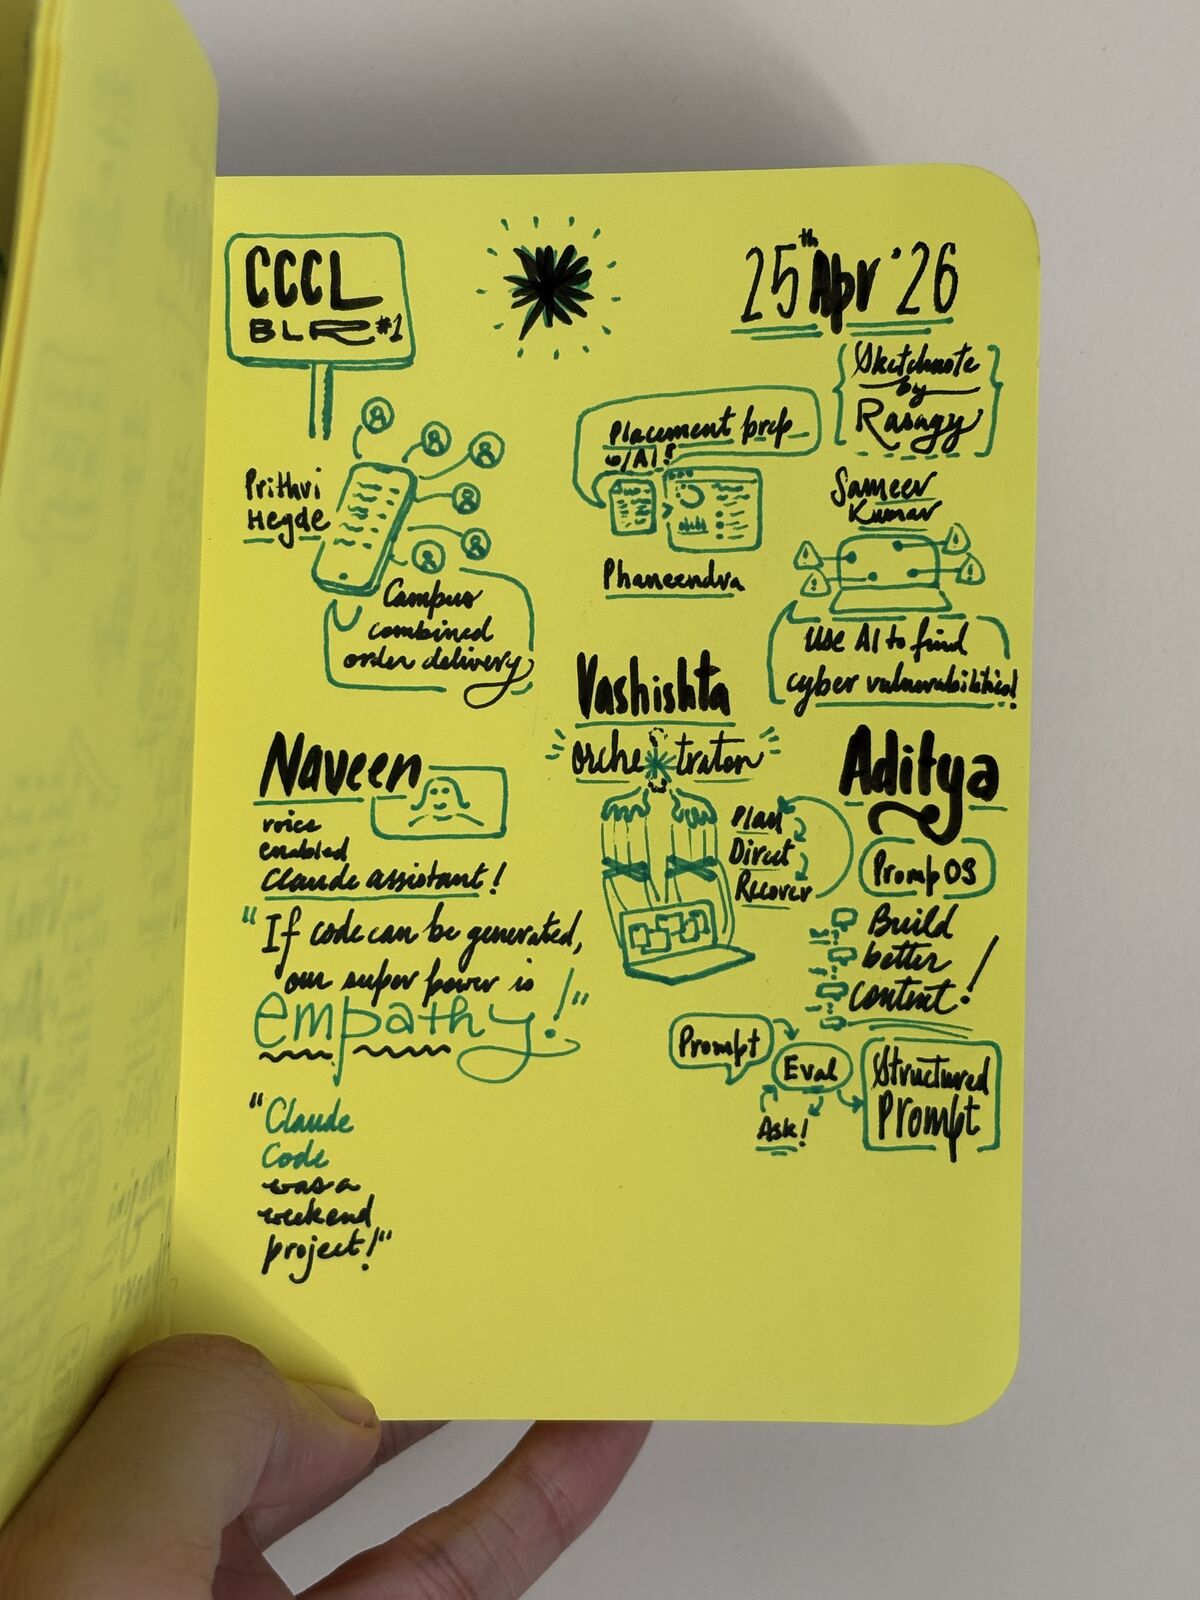 CCCL
BLR #1
25th Apr '26
Sketchnote
by
Rasagy
Prithvi
Hegde
Campus
combined
order delivery
Placement prep
w/AI!
Phaneendra
Sameer
Kumar
Use AI to find
cyber vulnerabilities!
Naveen
voice
enabled
Claude assistant!
"If code can be generated,
our super power is
empathy!"
"Claude
Code
was a
weekend
project!"
Vashishta
orchestrator
Plan
Direct
Recover
Aditya
PrompOS
Build
better
content!
Prompt
Eval
Ask!
Structured
Prompt